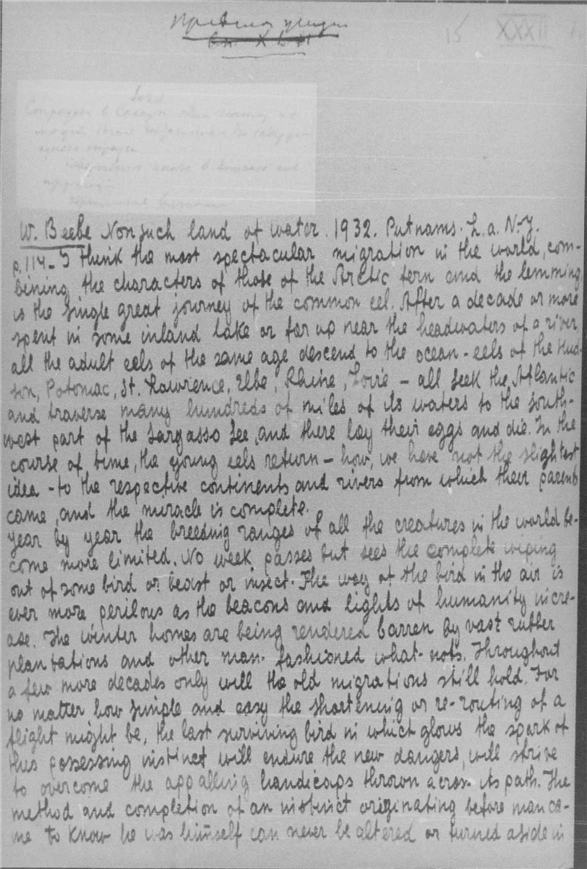 15 XXXII
W. Beebe Nonsuch land of water. 1932. Putnams. L. a. N-Y.
p. 114 - I think the most spectacular migration in the world, com-
bining the characters of those of the Arctic tern and the lemming
is the single great journey of the common eel. After a decade or more
spent in some inland lake or far up near the headwaters of a river
all the adult eels of the same age descend to the ocean - eels of the Hud-
son, Potomac, St. Lawrience, Elbe, Rhine, Loire - all seek the Atlantic
and traverse many hundreds of miles of its waters to the south-
west part of the Sargasso See, and there lay their eggs and die. In the
course of time, the young eels return - how, we have not the slightest
idea - to the respective continents and rivers from which their parents
came, and the miracle is complete.
Year by year the breeding ranges of all the creatures in the world be-
come more limited. No week passes but sees the complete wiping
out of some bird or beast or insect. The way of the bird in the air is
ever more perilous as the beacons and lights of humanity incre-
ase. The winter homes are being rendered barren by vast rubber
plantations and other man-fashioned what-nots. Throughout
a few more decades only will the old migrations still hold. For
no matter how simple and easy the shortening or re-routing of a
flight might be, the last surviving bird in which glows the spark of
this possessing instinct will endure the new dangers, will strive
to overcome the appalling handicaps thrown across its path. The
method and completion of an instinct originating before man ca-
me to know he was himself can never be altered or turned aside in